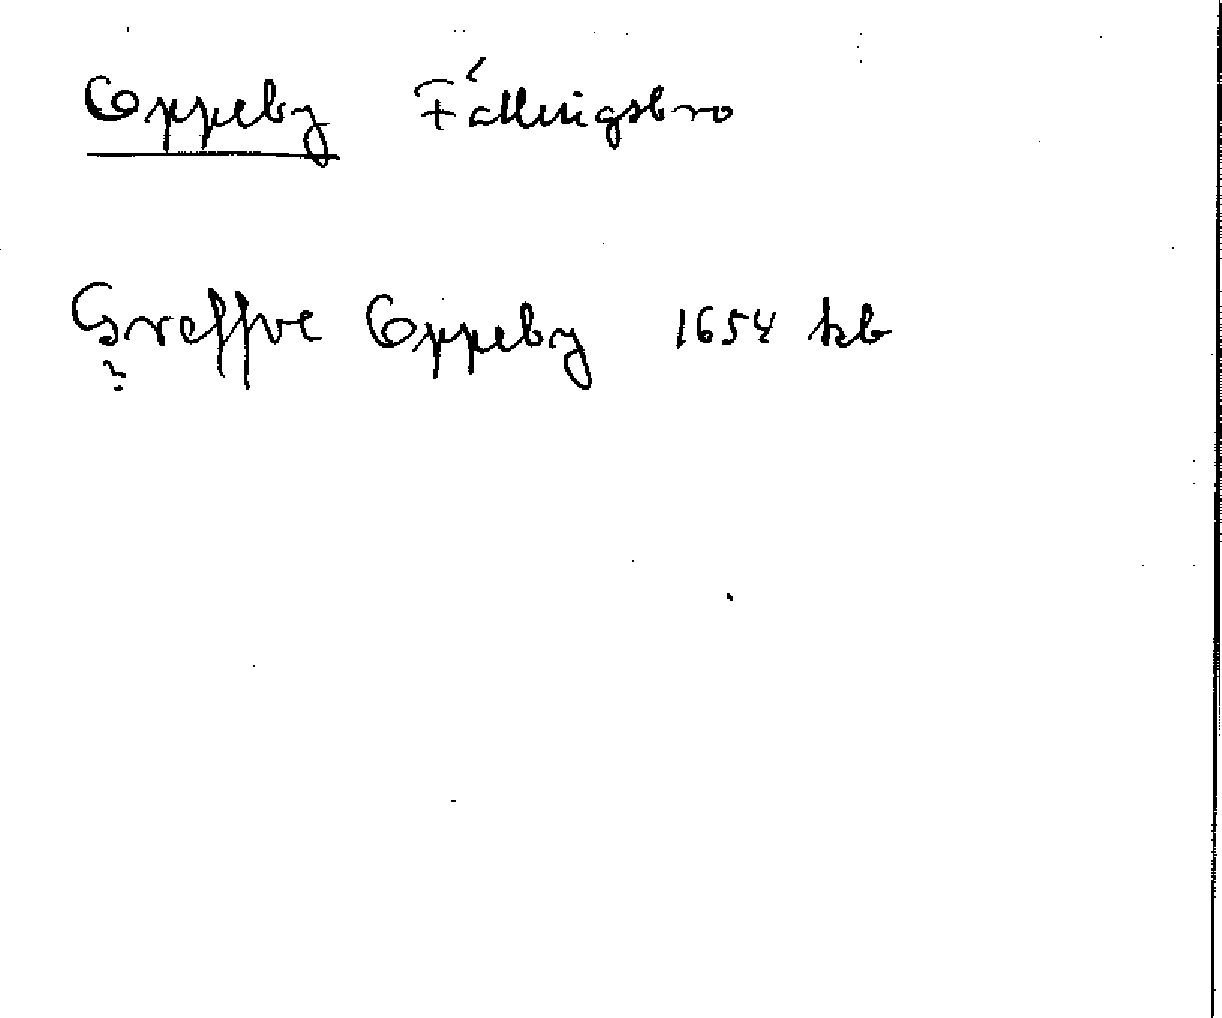 Oppeby Fällingsbro
Greffve Oppeby 1654 kb
?